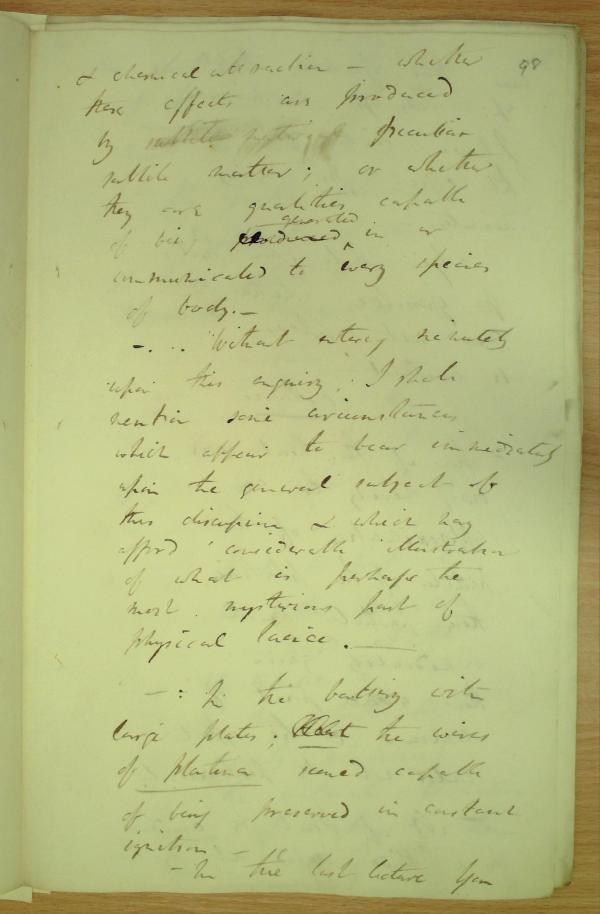 98
& chemical attraction – whether
these effects are produced
by subtile peculiar
subtile matter; or whether
they are qualities capable
generated
of being produced in or
communicated to every species
of body. –
–. . . Without entering minutely
upon this enquiry; I shall
mention some circumstances
which appear to bear immediately
upon the general subject of
this discussion & which may
afford considerable illustration
of what is perhaps the
most mysterious part of
physical science. —
– : In the battery with
large plates; the wires
of platina seemed capable
of being preserved in constant
ignition –
– In the last lecture you